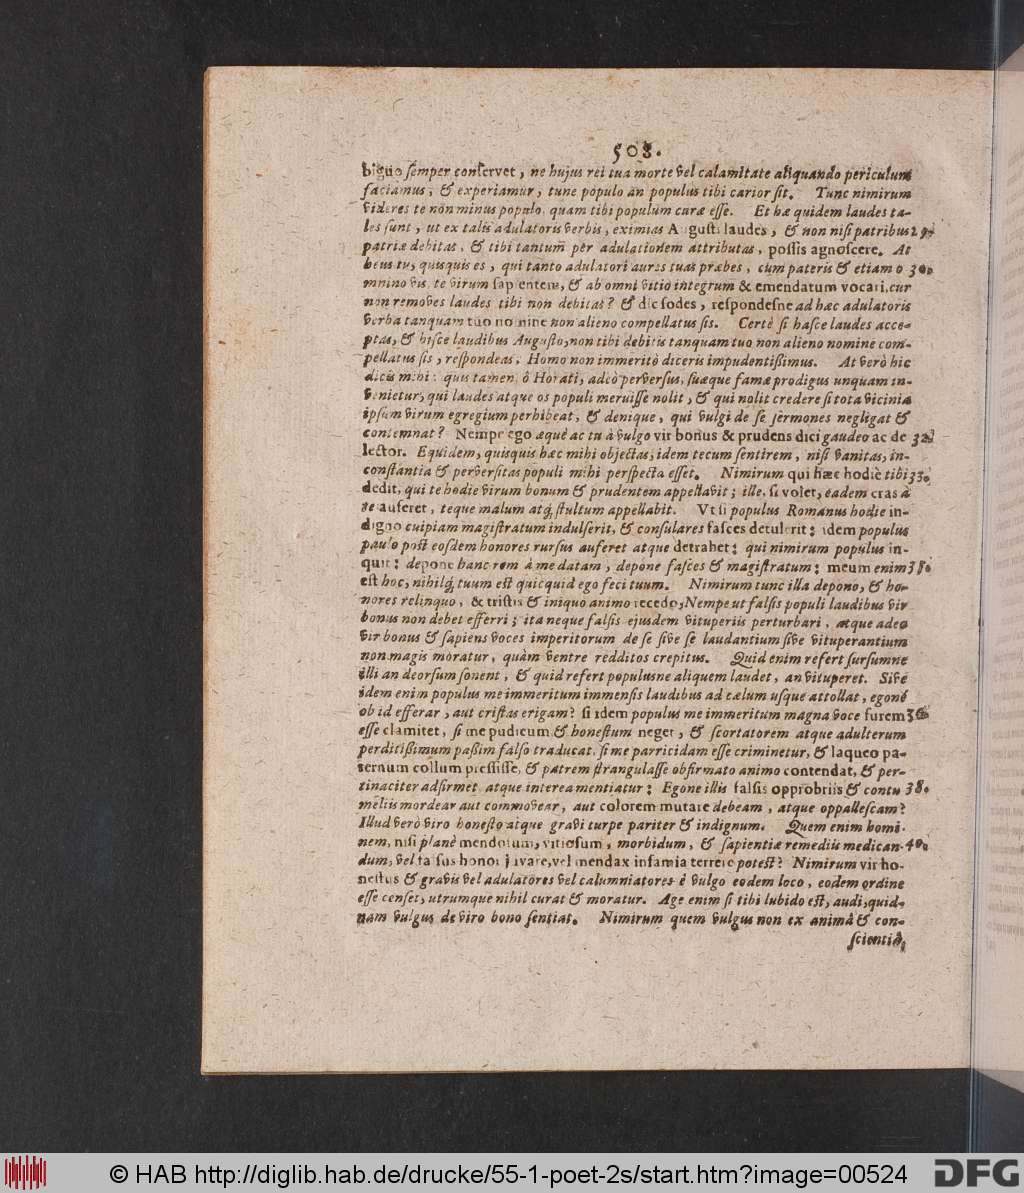 508.
biguo semper conservet, ne hujus rei tua morte vel calamitate aliquando periculum
faciamus, & experiamur, tune populo an populus tibi carior sit. Tunc nimirum
videres te non minus populo, quam tibi populum curæ esse. Et hæ quidem laudes ta-
les sunt, ut ex talis adulatoris verbis, eximias Augusti laudes, & non nisi patribus 29.
patriæ debitas, & tibi tantum per adulationem attributas, possis agnoscere. At
heus tu, quisquis es, qui tanto adulatori aures tuas præbes, cum pateris & etiam o 30.
mnino vis, te virum sapientem, & ab omni vitio integrum & emendatum vocari, cur
non removes laudes tibi non debitas? & dic sodes, respondesne ad hæc adulatoris
verba tanquam tuo nomine non alieno compellatus sis. Certè si hasce laudes acce-
ptas, & hisce laudibus Augusto, non tibi debitis tanquam tuo non alieno nomine com-
pellatus sis, respondeas, Homo non immeritò diceris impudentißimus. At verò hic
dicis mihi: quis tamen, ô Horati, adeò perversus, suæque famæ prodigus unquam in-
venietur, qui laudes atque os populi meruisse nolit, & qui nolit credere si tota vicinia
ipsum virum egregium perhibeat, & denique, qui vulgi de se sermones negligat &
contemnat? Nempe ego æquè ac tu à vulgo vir bonus & prudens dici gaudeo ac de 32.
lector. Equidem, quisquis hæc mihi objectas, idem tecum sentirem, nisi vanitas, in-
constantia & perversitas populi mihi perspecta esset. Nimirum qui hæc hodiè tibi 33.
dedit, qui te hodie virum bonum & prudentem appellavit; ille, si volet, eadem cras à
te auferet, teque malum atq; stultum appellabit. Ut si populus Romanus hodie in-
digno cuipiam magistratum indulserit, & consulares fasces detulerit: idem populus
paulo post eosdem honores rursus auferet atque detrahet: qui nimirum populus in-
quit: depone hanc rem à me datam, depone fasces & magistratum: meum enim 38.
est hoc, nihilq; tuum est quicquid ego feci tuum. Nimirum tunc illa depono, & ho-
nores relinquo, & tristis & iniquo animo recedo, Nempe ut falsis populi laudibus vir
bonus non debet efferri; ita neque falsis ejusdem vituperiis perturbari, atque adeo
vir bonus & sapiens voces imperitorum de se sive se laudantium sive vituperantium
non magis moratur, quàm ventre redditos crepitus. Quid enim refert sursumne
illi an deorsum sonent, & quid refert populusne aliquem laudet, an vituperet. Sive
idem enim populus me immeritum immensis laudibus ad cælum usque attollat, egone
ob id efferar, aut cristas erigam? si idem populus me immeritum magna voce furem 36.
esse clamitet, si me pudicum & honestum neget, & scortatorem atque adulterum
perditißimum paßim falso traducat, si me parricidam esse criminetur, & laqueo pa-
ternum collum pressisse, & patrem strangulasse obfirmato animo contendat, & per-
tinaciter adfirmet atque interea mentiatur: Egone illis falsis opprobriis & contu 38.
meliis mordear aut commovear, aut colorem mutare debeam, atque oppallescam?
Illud verò viro honesto atque gravi turpe pariter & indignum. Quem enim homi-
nem, nisi planè mendosum, vitiosum, morbidum, & sapientiæ remediis medican- 40.
dum, vel falsus honor juvare, vel mendax infamia terrere potest? Nimirum vir ho-
nestus & gravis vel adulatores vel calumniatores è vulgo eodem loco, eodem ordine
esse censet, utrumque nihil curat & moratur. Age enim si tibi lubido est, audi, quid-
nam vulgus de viro bono sentiat. Nimirum quem vulgus non ex animâ & con-
scientiâ,
© HAB http://diglib.hab.de/drucke/55-1-poet-2s/start.htm?image=00524
DFG